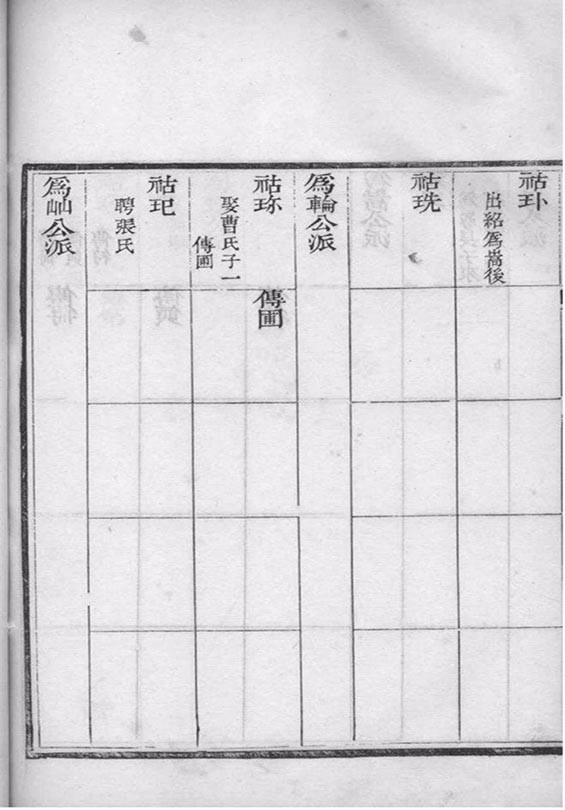 祜玣
出紹爲嵩後
祜珗
爲輪公派
祜珎
娶曹氏子一
傳圃
傳圃
祜玘
聘張氏
爲屾公派